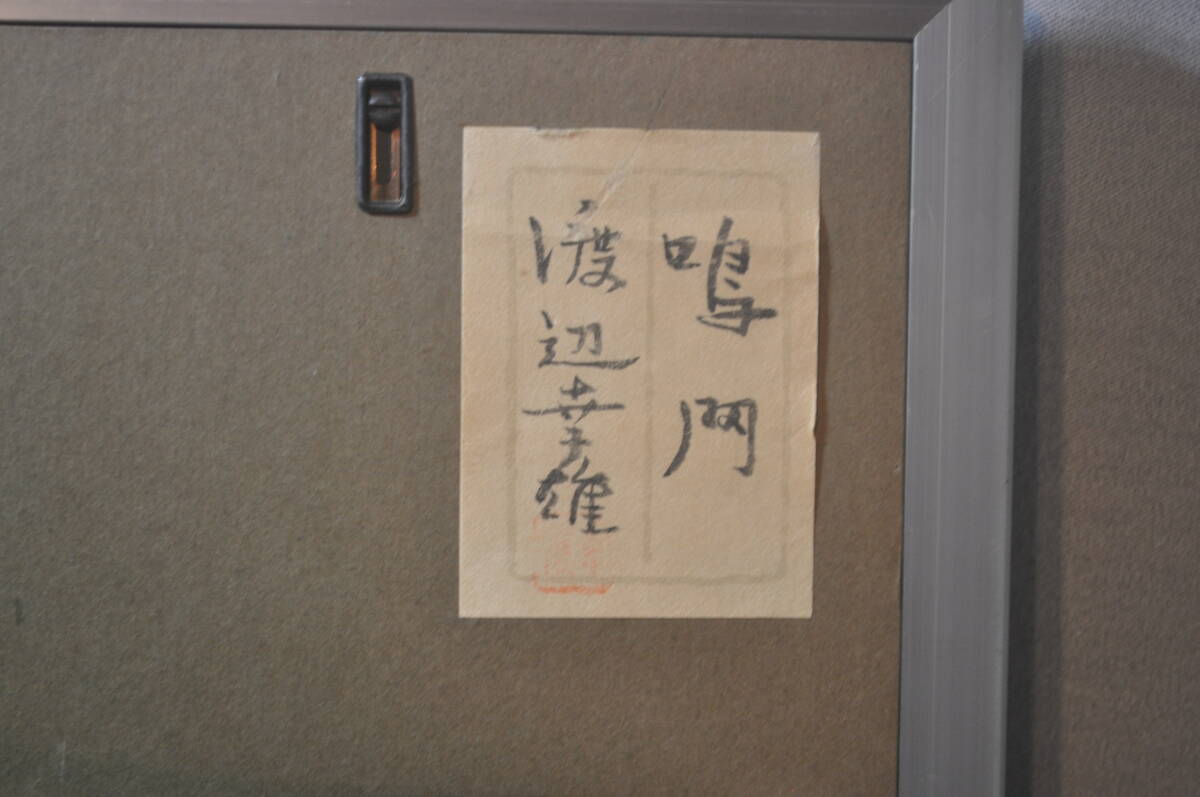 鳴門
渡辺幸雄